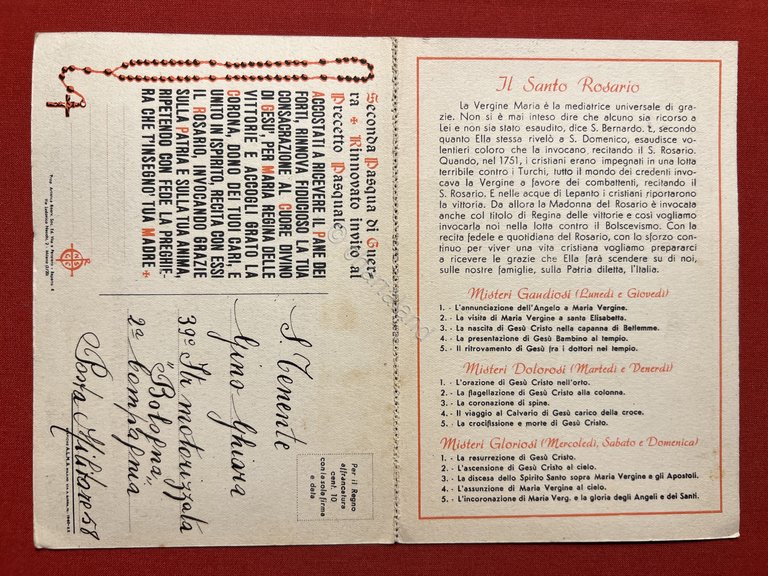 Seconda Pasqua di Guer-
ra ✠ Rinnovato invito al
Precetto Pasquale
ACCOSTATI A RICEVERE IL PANE DEI
FORTI, RINNOVA FIDUCIOSO LA TUA
CONSACRAZIONE AL CUORE DIVINO
DI GESU', PER MARIA REGINA DELLE
VITTORIE E ACCOGLI GRATO LA
CORONA, DONO DEI TUOI CARI, E
UNITO IN ISPIRITO, RECITA CON ESSI
IL ROSARIO, INVOCANDO GRAZIE
SULLA PATRIA E SULLA TUA ANIMA,
RIPETENDO CON FEDE LA PREGHIE-
RA CHE T'INSEGNO' TUA MADRE ✠
Per il Regno
affrancatura
cent. 10
con la sola firma
e data
S. Tenente
Gino Ghiara
39º Ftr motorizzata
"Bologna"
2ª Compagnia
Posta Militare 58
Il Santo Rosario
La Vergine Maria è la mediatrice universale di gra-
zie. Non si è mai inteso dire che alcuno sia ricorso a
Lei e non sia stato esaudito, dice S. Bernardo. E, secondo
quanto Ella stessa rivelò a S. Domenico, esaudisce vo-
lentieri coloro che la invocano recitando il S. Rosario.
Quando, nel 1751, i cristiani erano impegnati in una lotta
terribile contro i Turchi, tutto il mondo dei credenti invo-
cava la Vergine a favore dei combattenti, recitando il
S. Rosario. E nelle acque di Lepanto i cristiani riportarono
la vittoria. Da allora la Madonna del Rosario è invocata
anche col titolo di Regina delle vittorie e così vogliamo
invocarla noi nella lotta contro il Bolscevismo. Con la
recita fedele e quotidiana del Rosario, con lo sforzo con-
tinuo per viver una vita cristiana vogliamo prepararci
a ricevere le grazie che Ella farà scendere su di noi,
sulle nostre famiglie, sulla Patria diletta, l'Italia.
Misteri Gaudiosi (Lunedì e Giovedì)
1. - L'annunciazione dell'Angelo a Maria Vergine.
2. - La visita di Maria Vergine a santa Elisabetta.
3. - La nascita di Gesù Cristo nella capanna di Betlemme.
4. - La presentazione di Gesù Bambino al tempio.
5. - Il ritrovamento di Gesù fra i dottori nel tempio.
Misteri Dolorosi (Martedì e Venerdì)
1. - L'orazione di Gesù Cristo nell'orto.
2. - La flagellazione di Gesù Cristo alla colonna.
3. - La coronazione di spine.
4. - Il viaggio al Calvario di Gesù carico della croce.
5. - La crocifissione e morte di Gesù Cristo.
Misteri Gloriosi (Mercoledì, Sabato e Domenica)
1. - La resurrezione di Gesù Cristo.
2. - L'ascensione di Gesù Cristo al cielo.
3. - La discesa dello Spirito Santo sopra Maria Vergine e gli Apostoli.
4. - L'assunzione di Maria Vergine al cielo.
5. - L'incoronazione di Maria Verg. e la gloria degli Angeli e dei Santi.